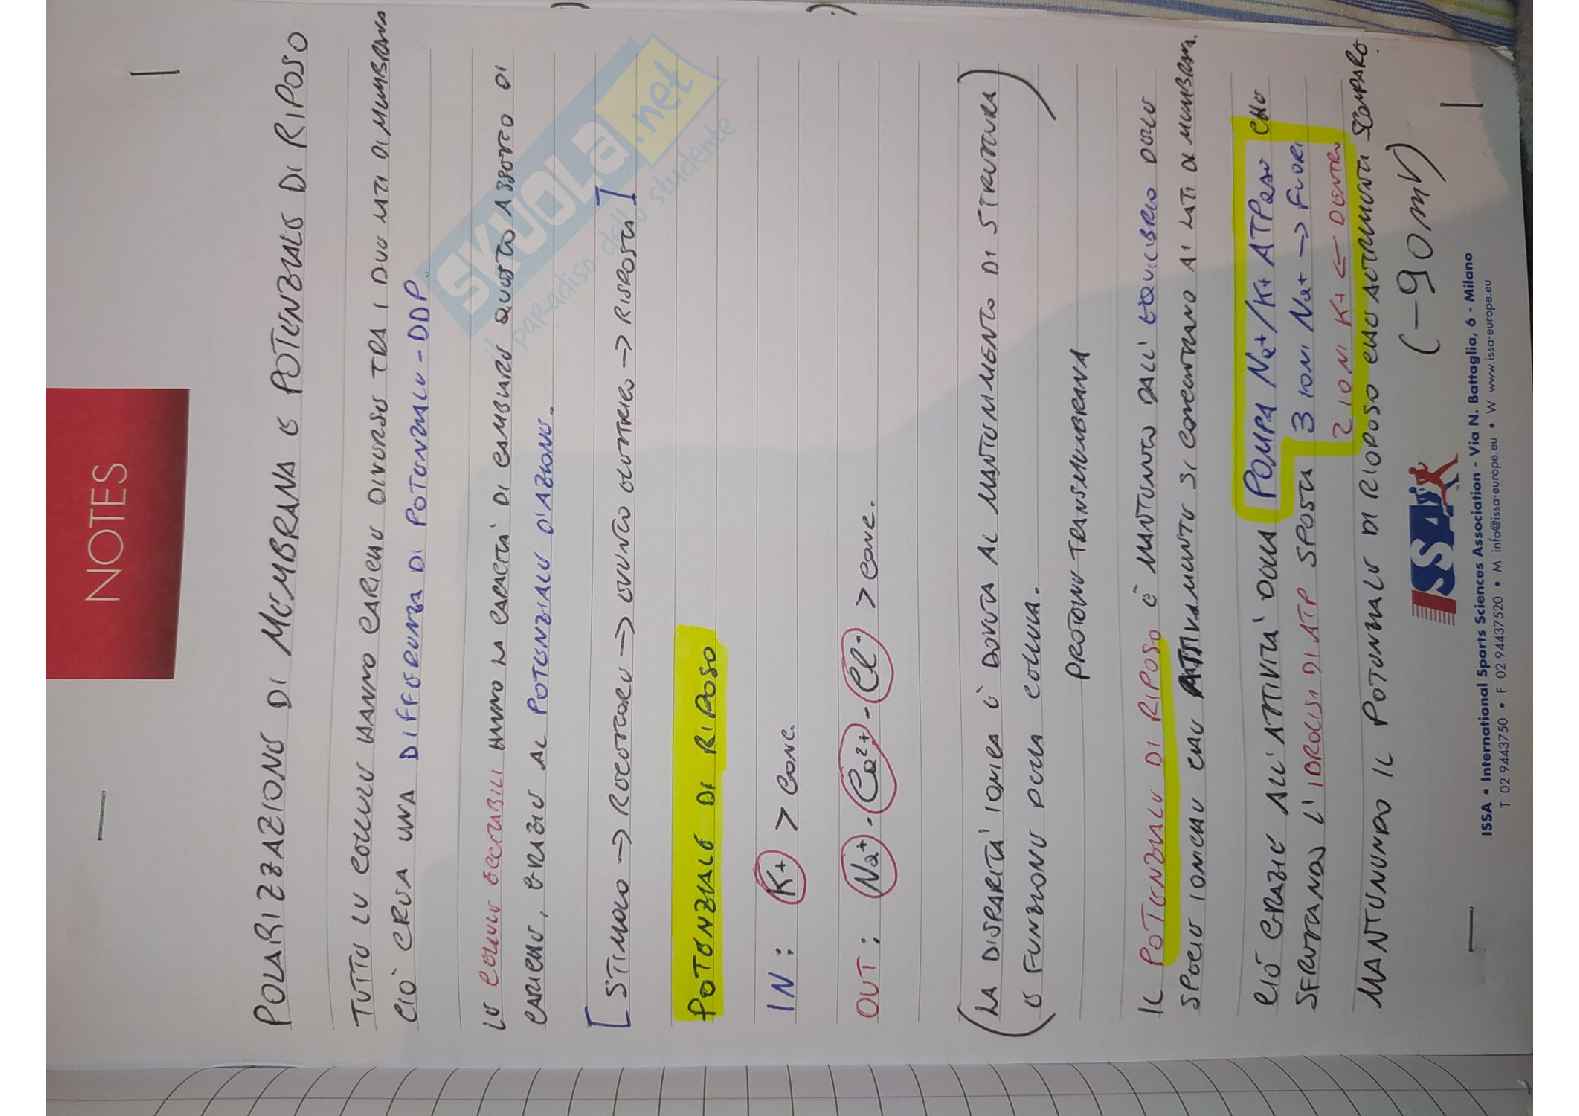 NOTES
POLARIZZAZIONE DI MEMBRANA E POTENZIALE DI RIPOSO
TUTTE LE CELLULE HANNO CARICHE DIVERSE TRA I DUE LATI DI MEMBRANA
CIÒ CREA UNA DIFFERENZA DI POTENZIALE - DDP.
LE CELLULE ECCITABILI HANNO LA CAPACITÀ DI CAMBIARE QUESTO ASSETTO DI
CARICHE, GRAZIE AL POTENZIALE D'AZIONE.
[STIMOLO → RECETTORE → EVENTO ELETTRICO → RISPOSTA]
POTENZIALE DI RIPOSO
IN: K+ > CONC.
OUT: Na+ - Ca2+ - Cl- > CONC.
(LA DISPARITÀ IONICA È DOVUTA AL MANTENIMENTO DI STRUTTURA
E FUNZIONE DELLA CELLULA.)
PROTEINE TRANSMEMBRANA
IL POTENZIALE DI RIPOSO È MANTENUTO DALL'EQUILIBRIO DELLE
SPECIE IONICHE CHE ATTIVAMENTE SI CONCENTRANO AI LATI DI MEMBRANA.
CIÒ GRAZIE ALL'ATTIVITÀ DELLA POMPA Na+/K+ ATPasi CHE
SFRUTTANDO L'IDROLISI DI ATP SPOSTA 3 IONI Na+ → FUORI
2 IONI K+ ← DENTRO
MANTENENDO IL POTENZIALE DI RIOPOSO CHE ALTRIMENTI SCOMPARE.
(-90mV)
ISSA
ISSA • International Sports Sciences Association - Via N. Battaglia, 6 - Milano
T 02 9443750 • F 02 94437520 • M info@issa-europe.eu • W www.issa-europe.eu
SKUOLA.net
il paradiso dello studente